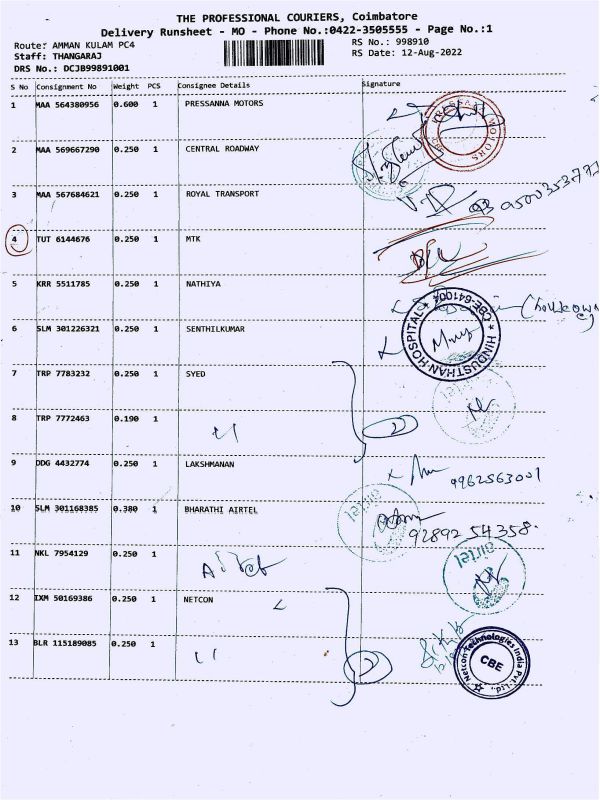 THE PROFESSIONAL COURIERS, Coimbatore
Delivery Runsheet - MO - Phone No.:0422-3505555 - Page No.:1
Route: AMMAN KULAM PC4 RS No.: 998910
Staff: THANGARAJ RS Date: 12-Aug-2022
DRS No.: DCJB99891001
S No Consignment No Weight PCS Consignee Details Signature
1 MAA 564380956 0.600 1 PRESSANNA MOTORS
PRESSANA MOTORS
2 MAA 569667290 0.250 1 CENTRAL ROADWAY
3 MAA 567684621 0.250 1 ROYAL TRANSPORT
9500353771
4 TUT 6144676 0.250 1 MTK
5 KRR 5511785 0.250 1 NATHIYA
6 SLM 301226321 0.250 1 SENTHILKUMAR
HINDUSTHAN HOSPITAL CBE-641004
7 TRP 7783232 0.250 1 SYED
8 TRP 7772463 0.190 1
2
9 DDG 4432774 0.250 1 LAKSHMANAN
9962563001
10 SLM 301168385 0.380 1 BHARATHI AIRTEL
airtel
92892 54358
11 NKL 7954129 0.250 1 Airtel
airtel
12 IXM 50169386 0.250 1 NETCON
13 BLR 115189085 0.250 1
2
Netcon Technologies India Pvt. Ltd.,
CBE